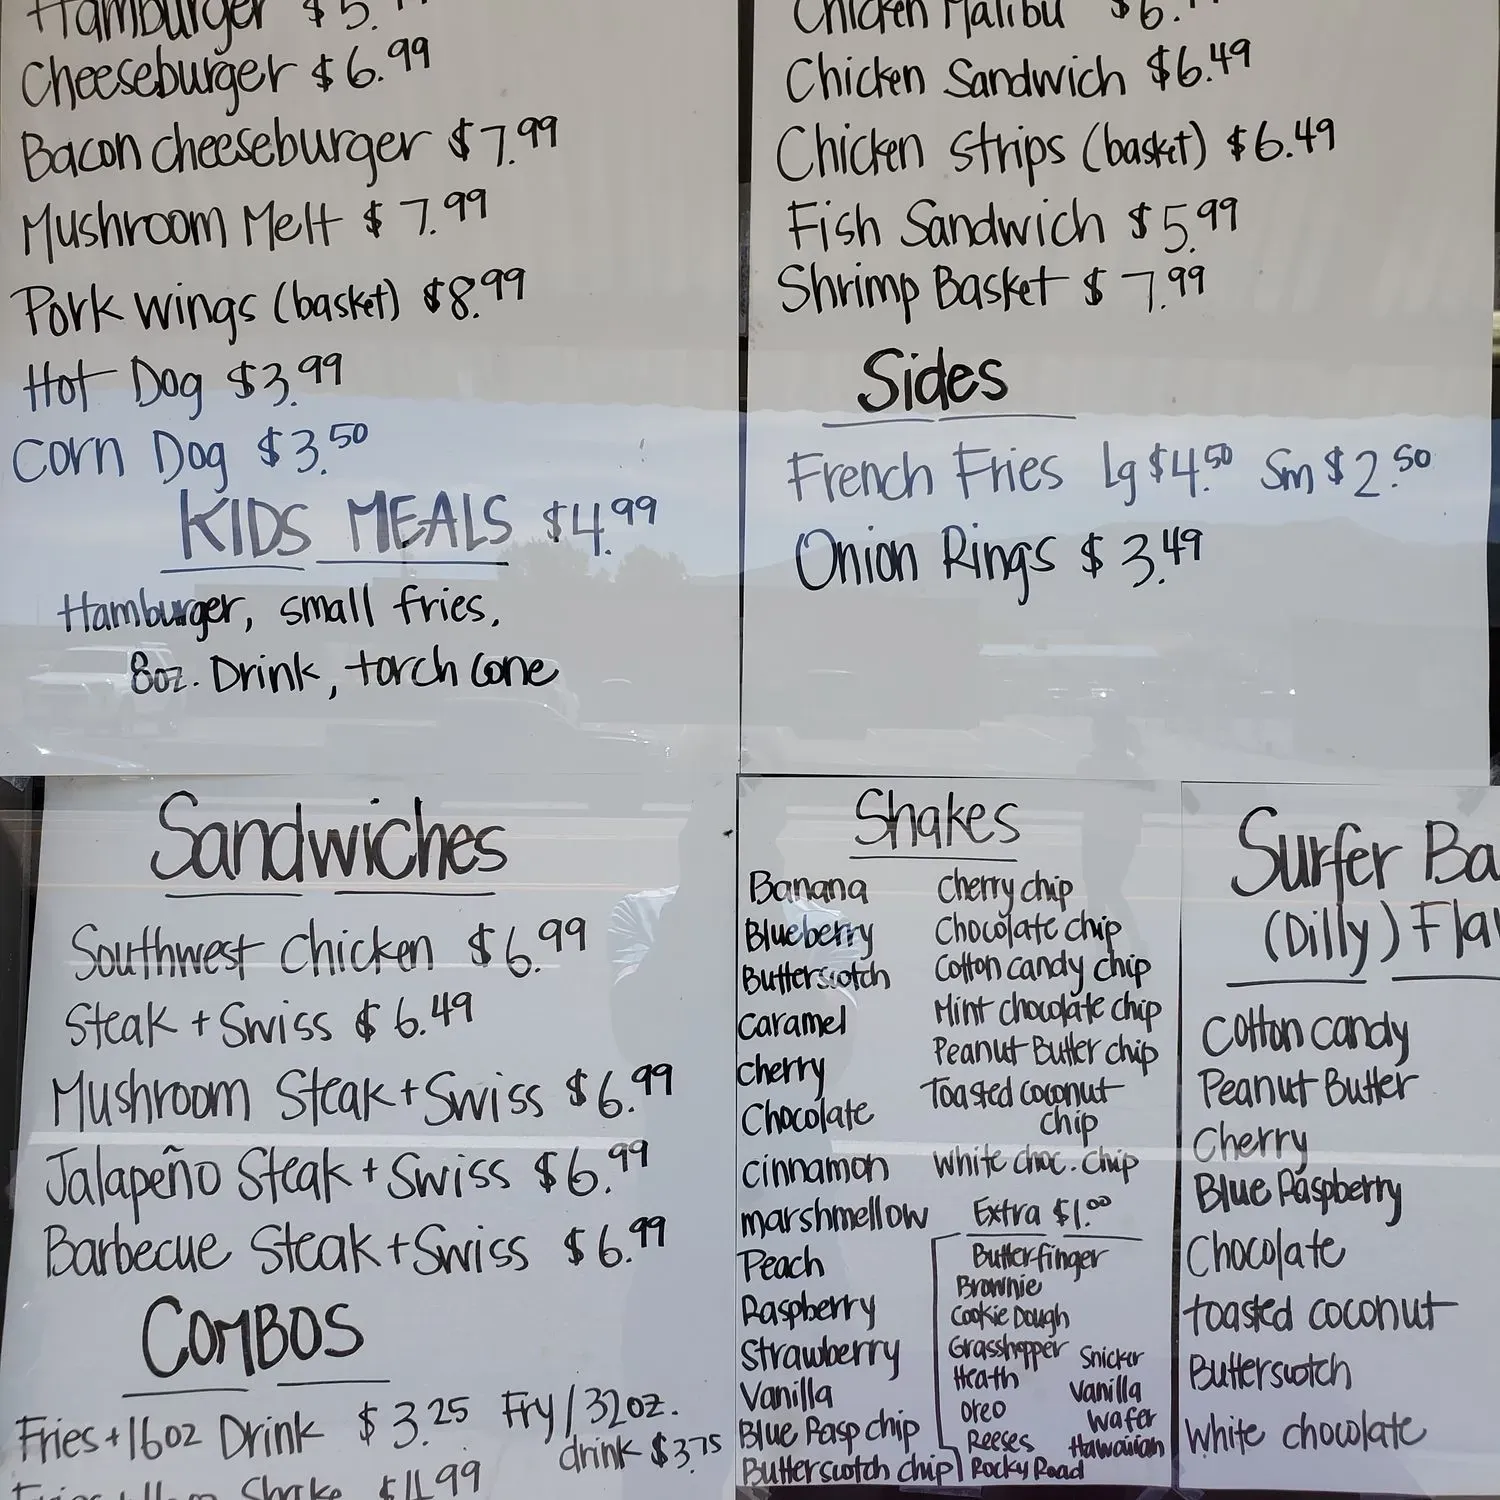 Hamburger $5.
Cheeseburger $6.99
Bacon cheeseburger $7.99
Mushroom Melt $7.99
Pork wings (basket) $8.99
Hot Dog $3.99
Corn Dog $3.50
KIDS MEALS $4.99
Hamburger, small fries,
8oz. Drink, torch cone
Chicken Malibu $6.
Chicken Sandwich $6.49
Chicken strips (basket) $6.49
Fish Sandwich $5.99
Shrimp Basket $7.99
Sides
French Fries Lg $4.50 Sm $2.50
Onion Rings $3.49
Sandwiches
Southwest Chicken $6.99
Steak + Swiss $6.49
Mushroom Steak + Swiss $6.99
Jalapeño Steak + Swiss $6.99
Barbecue Steak + Swiss $6.99
COMBOS
Fries + 16oz Drink $3.25
Fry / 32oz.
drink $3.75
Shake $4.99
Shakes
Banana
Blueberry
Butterscotch
Caramel
Cherry
Chocolate
Cinnamon
marshmellow
Peach
Raspberry
Strawberry
Vanilla
Blue Rasp chip
Butterscotch chip
Cherry chip
Chocolate chip
Cotton candy chip
Mint chocolate chip
Peanut Butter chip
Toasted coconut
chip
White choc. chip
Extra $1.00
Butterfinger
Brownie
Cookie Dough
Grasshopper
Heath
Oreo
Reeses
Rocky Road
Snicker
Vanilla
Wafer
Hawaiian
Surfer Ba
(Dilly) Fla
Cotton candy
Peanut Butter
Cherry
Blue Raspberry
Chocolate
toasted coconut
Butterscotch
White chocolate